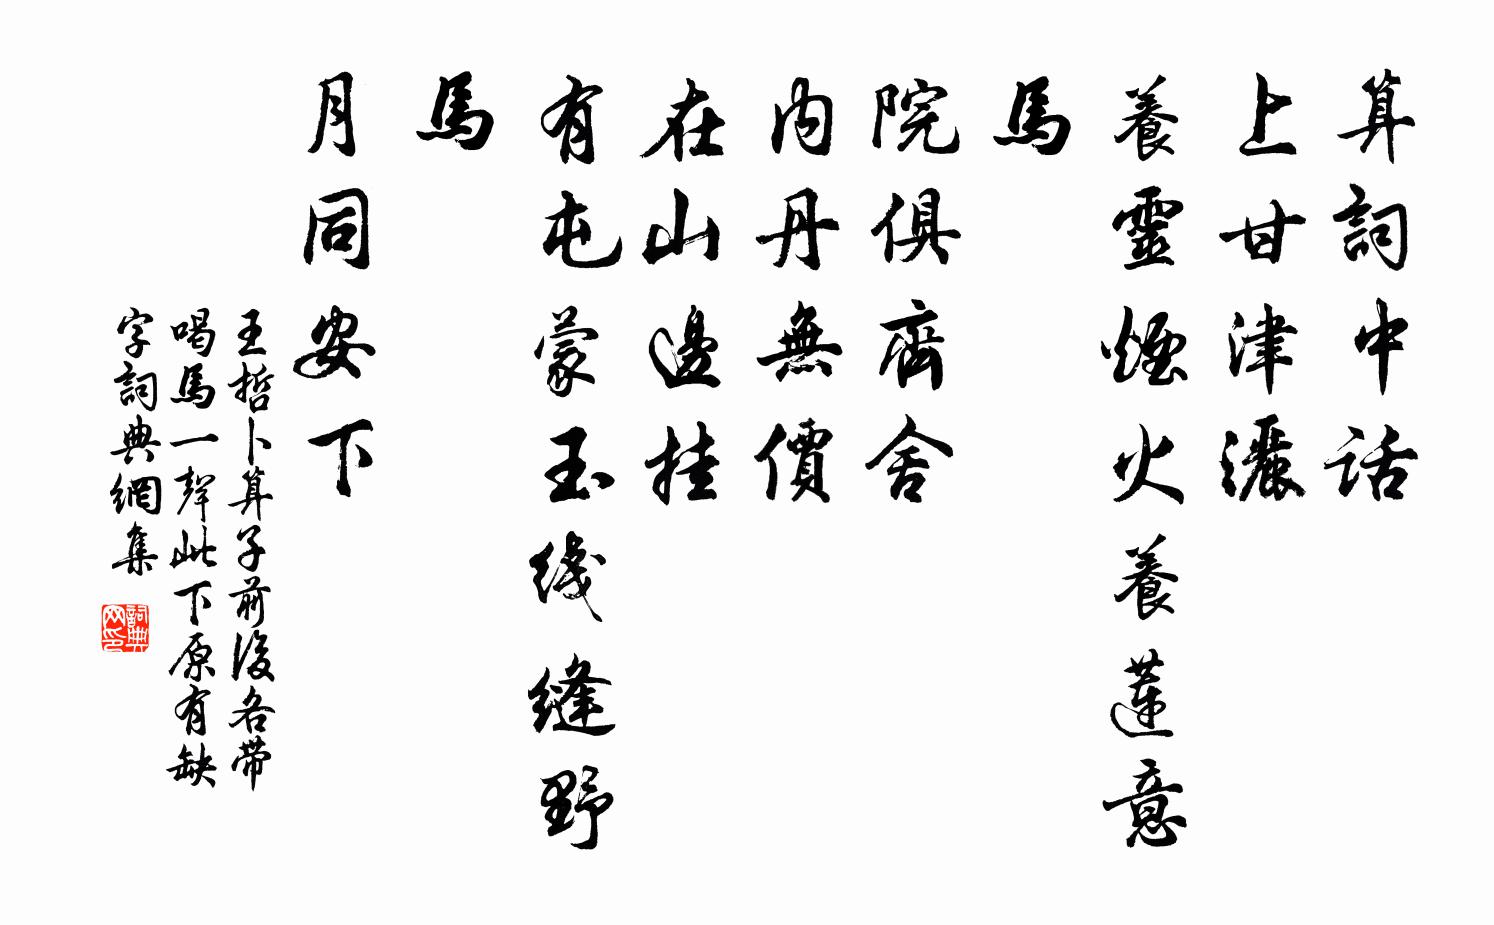 算詞中話
上甘津灑
養靈煙火養蓮意
馬
院俱齊舍
內丹無價
在山邊挂
有屯蒙玉线縫野
馬
月同安下
王哲卜算子前後各带
喝馬一聲此下原有缺
字詞典網集
詞典网印